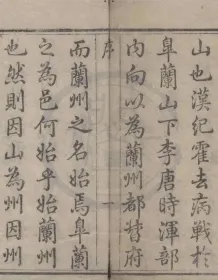 山也漢紀霍去病戰於
皐蘭山下李唐時渾部
内向以為蘭州都督府
序
一
而蘭州之名始焉皐蘭
之為邑何始乎始蘭州
也然則因山為州因